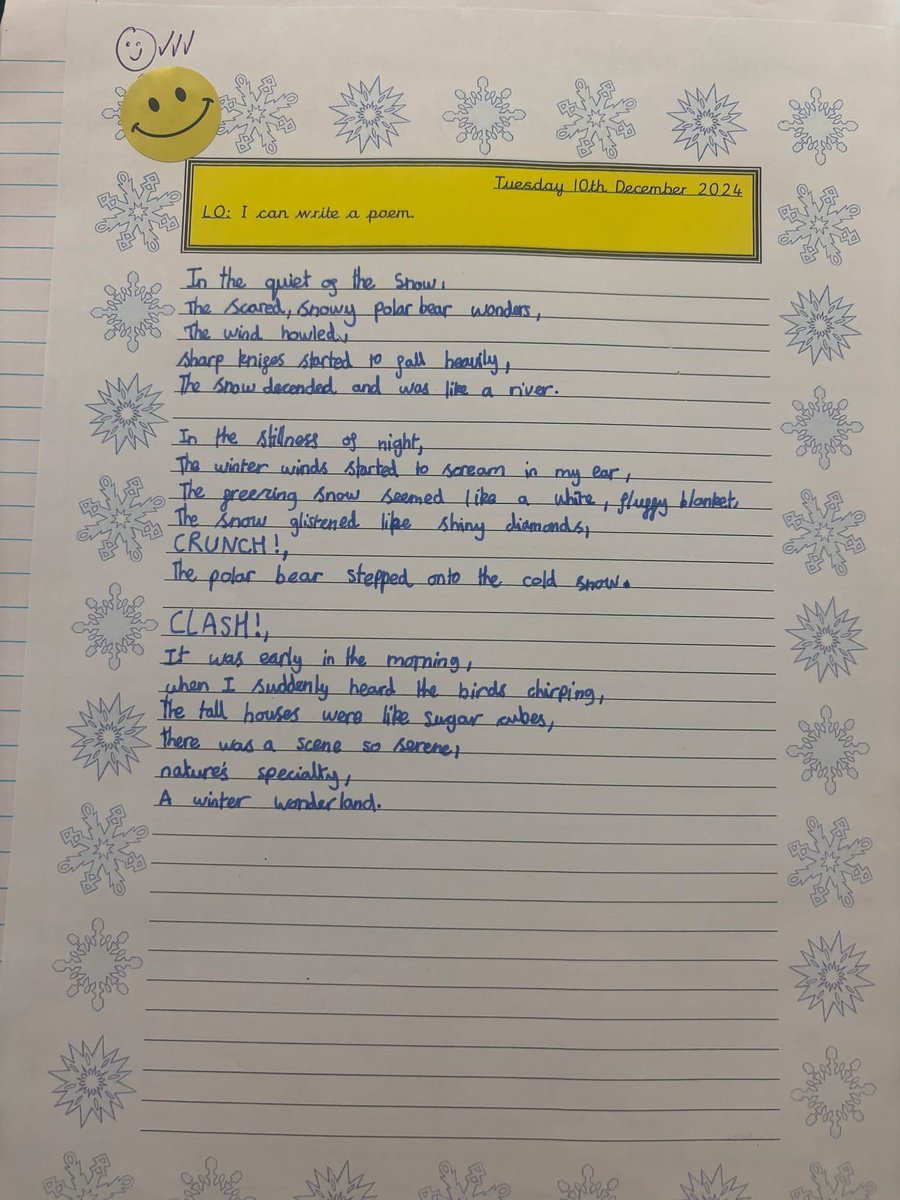 Tuesday 10th December 2024
LO: I can write a poem.
In the quiet of the snow,
The scared, snowy polar bear wonders,
The wind howled,
sharp knifes started to fall heavily,
The snow decended and was like a river.
In the stillness of night,
The winter winds started to scream in my ear,
The freezing snow seemed like a white, fluffy blanket,
The snow glistened like shiny diamonds,
CRUNCH!,
The polar bear stepped onto the cold snow.
CLASH!,
It was early in the morning,
when I suddenly heard the birds chirping,
The tall houses were like sugar cubes,
there was a scene so serene,
nature's specialty,
A winter wonderland.